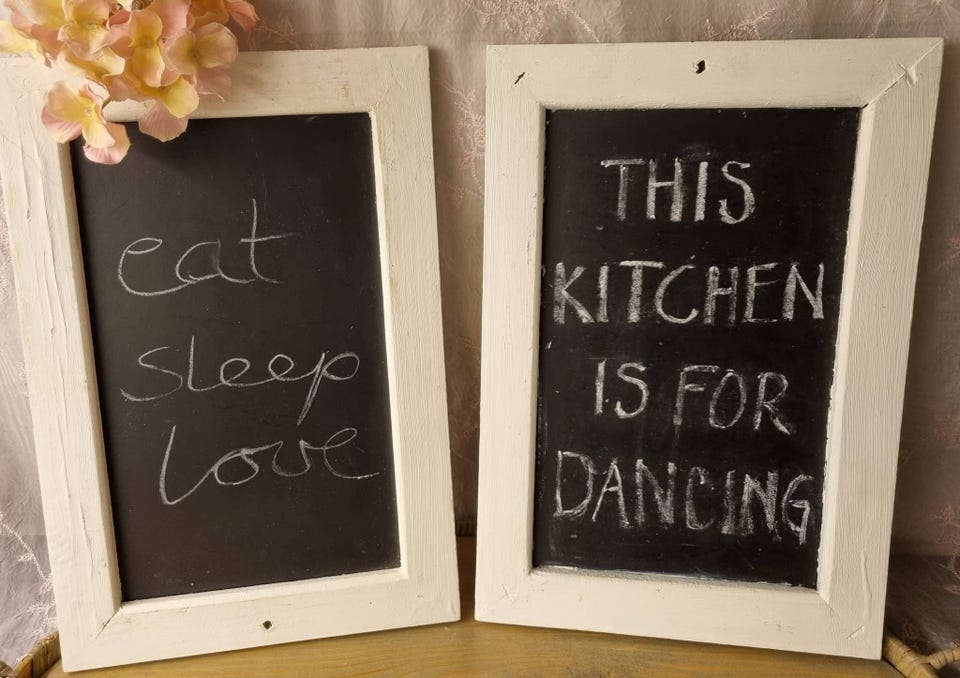 eat
sleep
love
THIS
KITCHEN
IS FOR
DANCING